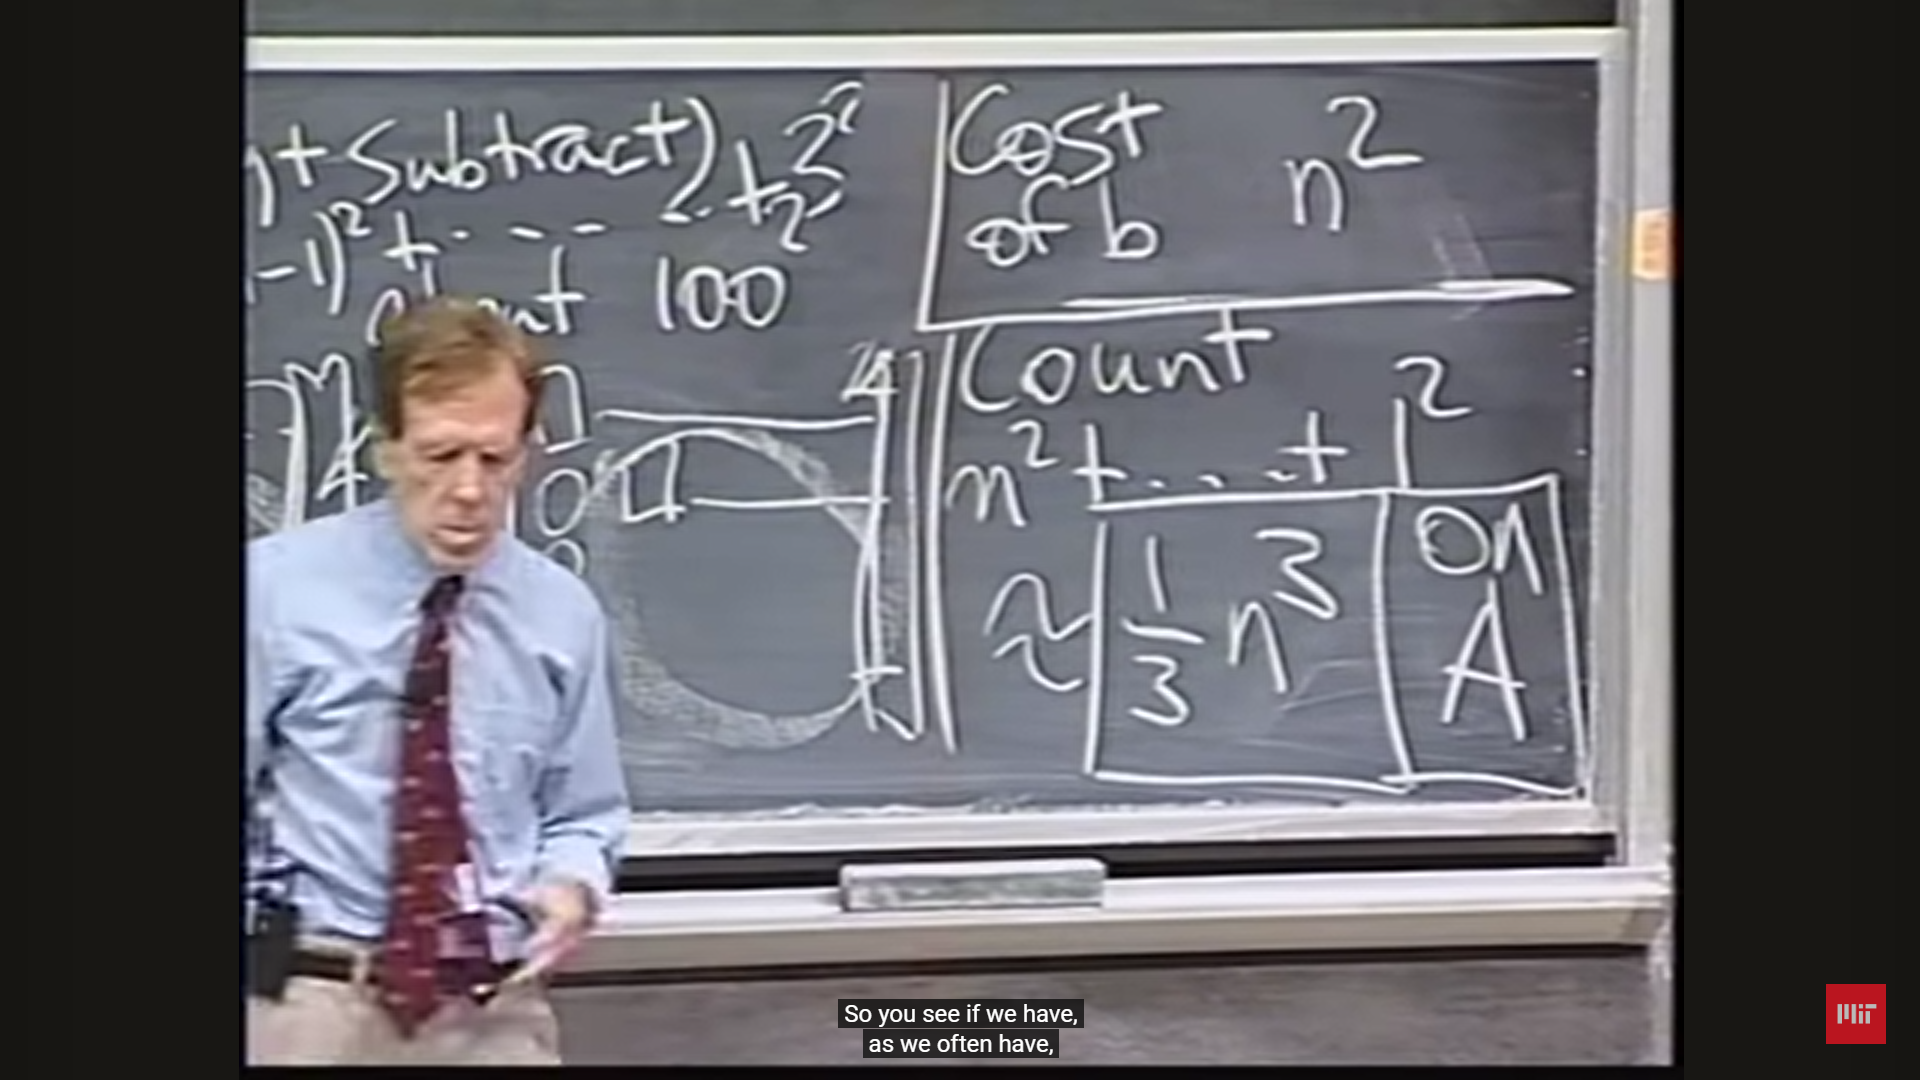 + Subtract)
-1)² + . . . 2² + 3²
100²
Cost of b n²
Count
n² + . . . + 1²
≈ 1/3 n³ On A
0
So you see if we have,
as we often have,
MIT